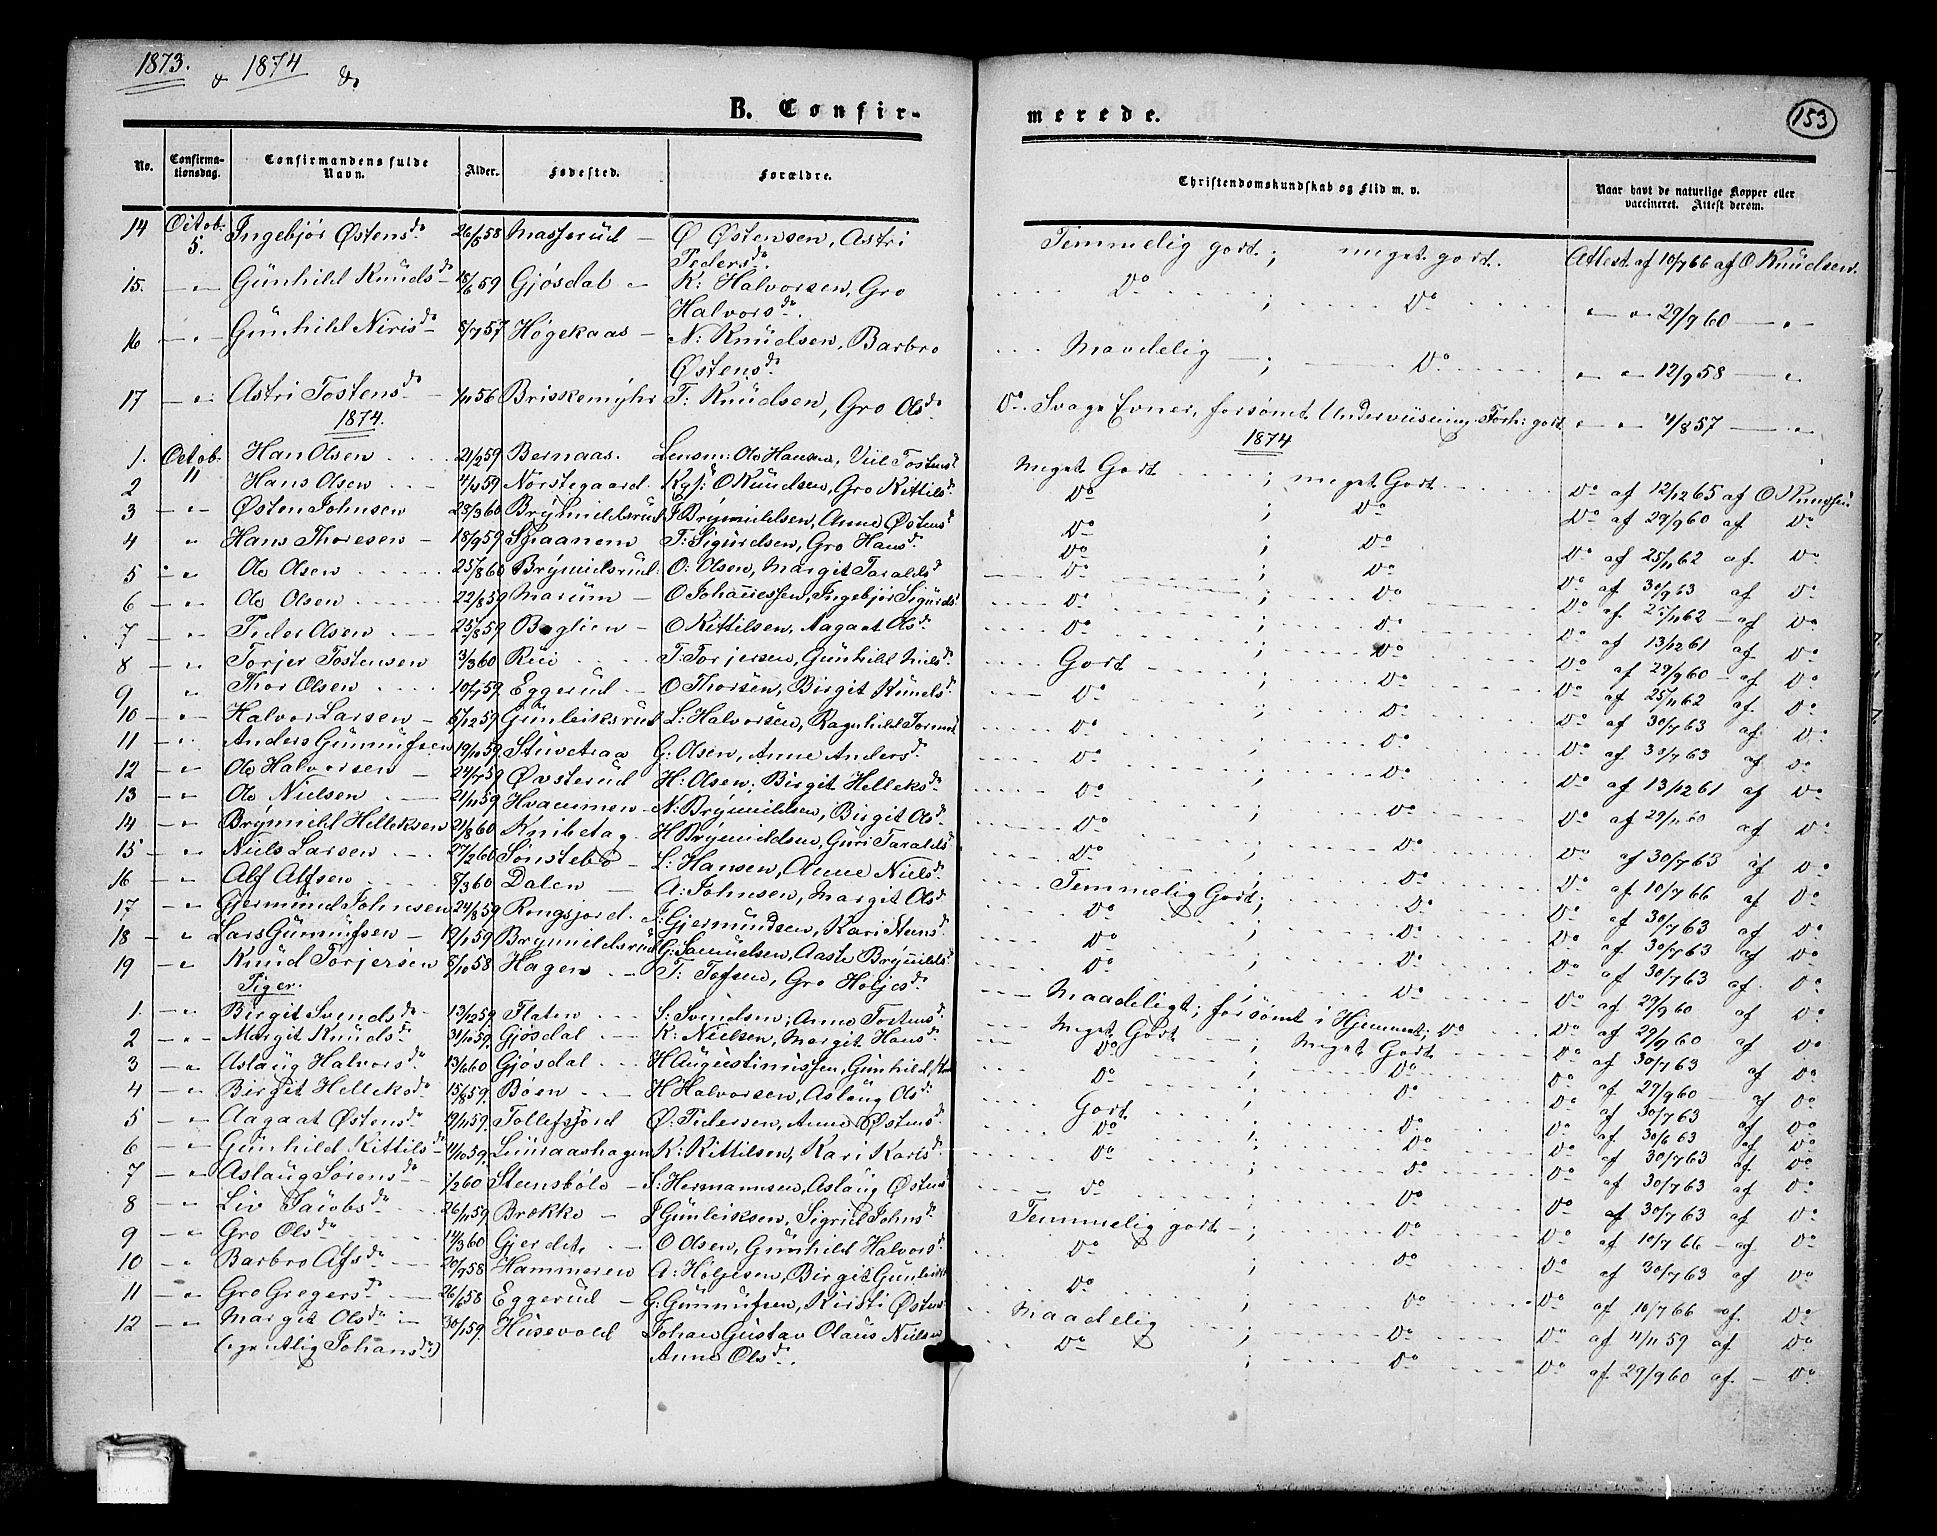 1873. & 1874 &.
B. Confirmerede.
153
No.
Confirmationsdag.
Confirmandens fulde Navn.
Alder.
Fødested.
Forældre.
Christendomskundskab og Flid m. v.
Naar havt de naturlige Kopper eller vaccineret. Attest derom.
14 Octob. 5. Ingebjør Østensdr 26/5 58 Masserud Ø Østensen, Astri Pedersdr. Temmelig godt; meget godt. Attest af 10/7 66 af O Knudsen.
15. Gunhild Knudsdr 18/6 59 Gjøsdal K: Halvorsen, Gro Halvorsdr. Do ; Do 29/9 60
16 Gunhild Nirisdr 8/7 57 Høgekaas N: Knudsen, Barbro Østensdr. Maadelig ; Do 12/9 58
17 Astri Tostensdr 1/11 56 Briskemyhr T: Knudsen, Gro Olsdr. Do. Svage Evner, forsømt Underviisning. Forh: godt 4/8 57
1874.
1874
1. Octob. 11 Han Olsen 21/2 59 Bernaas. Lensm: Ole Hansen, Viil Tostensdr Meget Godt ; meget Godt Do af 12/12 65 af O Knudsen
2 Hans Olsen 4/4 59 Norstegaard. Kgs: O Knudsen, Gro Kittilsdr. Do ; Do Do af 29/9 60 af Do
3 Østen Johnsen 23/3 60 Brynildsrud J Brynildsen, Anne Østensdr Do ; Do Do af 25/11 62 af Do
4 Hans Thoresen 18/9 59 Spaanem T: Sigurdsen, Gro Hansdr. Do ; Do Do af 30/9 63 af Do
5 Ole Olsen 25/8 60 Brynildsrud O: Olsen, Margit Taraldsdr Do ; Do Do af 25/11 62 af Do
6 Ole Olsen 22/8 59 Marum O Johannessen, Ingebjør Sigurdsdr Do ; Do Do af 13/12 61 af Do
7 Peder Olsen 25/8 59 Boglien O Kittilsen, Aagaat Olsdr Do ; Do Do af 29/9 60 af Do
8 Torjer Tostensen 3/3 60 Rui T: Torjersen, Gunhild Nielsdr Godt ; Do Do af 25/11 62 af Do
9 Thor Olsen 10/7 59 Eggerud O Thorsen, Birgit Knudsdr Do ; Do Do af 30/7 63 af Do
10 Halvor Larsen 5/12 59 Gunleiksrud L: Halvorsen, Ragnhild Tormod Do ; Do Do af 30/7 63 af Do
11 Anders Gunnufsen 19/11 59 Stuvetraa G: Olsen, Anne Andersdr Do ; Do Do af 13/12 61 af Do
12 Ole Halvorsen 24/7 59 Øvsterud H: Olsen, Birgit Helleksdr Do ; Do Do af 29/11 60 af Do
13 Ole Nielsen 21/11 59 Hvammen N: Brynildsen, Birgit Olsdr Do ; Do Do af 30/7 63 af Do
14 Brynild Helleksen 21/8 60 Knibetag H Brynildsen, Guri Taraldsdr Do ; Do Do af 10/7 66 af Do
15 Niels Larsen 27/2 60 Sønstebø L: Hansen, Anne Nielsdr Temmelig Godt; Do Do af 30/7 63 af Do
16 Alf Alfsen 8/3 60 Dalen A: Johnsen, Margit Olsdr Do ; Do Do af 30/7 63 af Do
17 Gjermund Johnsen 24/8 59 Rongsjord. J: Gjermundsen, Kari Hansdr Do ; Do Do af 30/7 63 af Do
18 Lars Gunnufsen 19/1 59 Brynildsrud G: Samuelsen, Aaste Brynildsdr Do ; Do Do af 29/9 60 af Do
19 Knud Torjersen 8/10 58 Hagen T: Tofsen, Gro Holjesdr. Maadeligt; forsømt i Hjemmet; Do Do af 29/9 60 af Do
Piger.
1. Birgit Svendsdr 13/12 59 Flaten S: Svendsen, Anne Tostensdr Meget Godt ; Meget Godt Do af 30/7 63 af Do
2 Margit Knudsdr 31/10 59. Gjøsdal K: Nielsen, Margit Hansdr Do ; Do Do af 29/9 60 af Do
3 Aslaug Halvorsdr 13/6 60 Gjøsdal H Augustinussen, Gunhild Do ; Do Do af 30/7 63 af Do
4 Birgit Helleksdr 15/8 59. Bøen H Halvorsen, Aslaug Olsdr. Godt ; Do Do af 30/6 63 af Do
5 Aagaat Østensdr 19/11 59. Tollefsjord Ø: Pedersen, Anne Østensdr Do ; Do Do af 30/7 63 af Do
6 Gunhild Kittilsdr 11/10 59. Lunaashagen K: Kittilsen, Kari Karlsdr Do ; Do Do af 30/7 63 af Do
7 Aslaug Sørensdr 1/2 60 Steinsbøle S: Hermannsen, Aslaug Østensdr Do ; Do Do af 30/7 63 af Do
8 Liv Jacobsdr 26/11 59. Brække J Gunleiksen, Sigrid Johnsdr Temmelig godt ; Do Do af 10/7 66 af Do
9 Gro Olsdr 14/3 60 Gjerdet, O Olsen, Gunhild Halvorsdr Do ; Do Do af 30/7 63 af Do
10 Barbro Alfsdr 20/7 58 Hammeren A: Holjesen, Birgit Gunleiksdr Do ; Do Do af 10/7 66 af Do
11 Gro Gregersdr 26/6 58 Eggerud G: Gunnufsen, Kirsti Østensdr Maadelig ; Do Do af 4/11 59 af Do
12 Margit Olsdr 30/1 59. Husevold Johan Gustav Olaus Nielsen Do ; Do Do af 29/9 60 af Do
(egentlig Johansdr) Anne Olsdr.